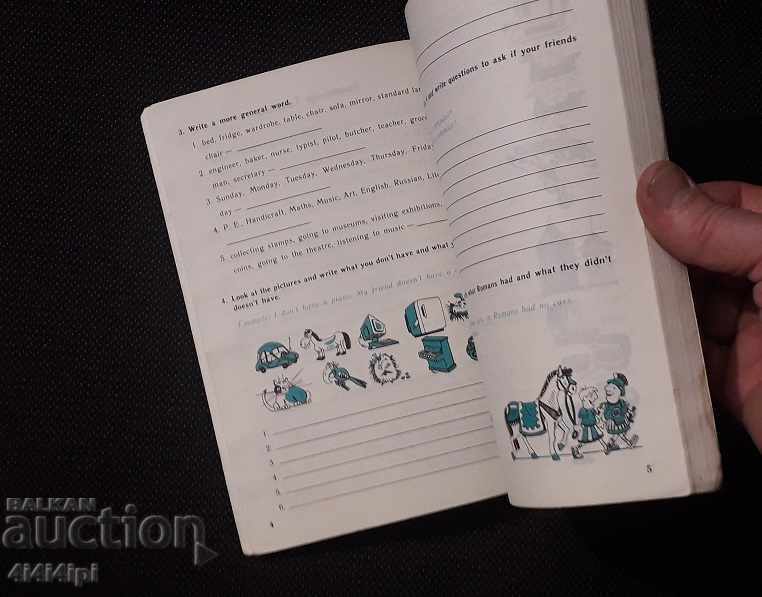 3. Write a more general word.
1. bed, fridge, wardrobe, table, chair, sofa, mirror, standard
chair —
2. engineer, baker, nurse, typist, pilot, butcher, teacher,
man, secretary —
3. Sunday, Monday, Tuesday, Wednesday, Thursday,
day —
4. P. E., Handicraft, Maths, Music, Art, English, Russian,
5. collecting stamps, going to museums, visiting exhibitions,
coins, going to the theatre, listening to music —
4. Look at the pictures and write what you don't have and what
doesn't have.
Example: I don't have a piano. My friend doesn't have a
1.
2.
3.
4.
5.
6.
4
and write questions to ask if your friends
Romans had and what they didn't
Romans had no cars.
5
BALKAN
auction
4M4M4ipl